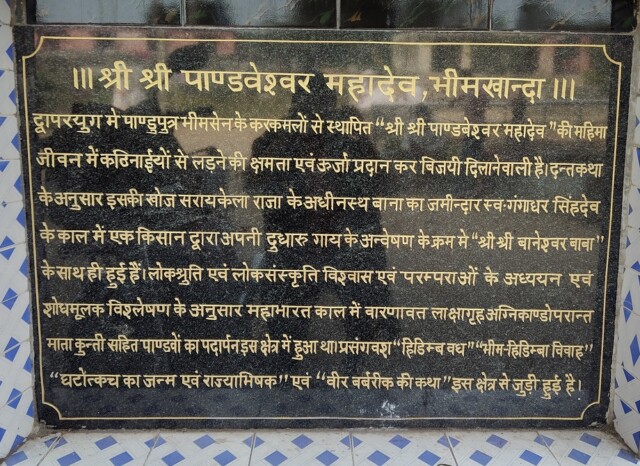 ॥। श्री श्री पाण्डवेश्वर महादेव, भीमखान्दा ॥।
द्वापरयुग में पाण्डुपुत्र भीमसेन के करकमलों से स्थापित “श्री श्री पाण्डवेश्वर महादेव” की महिमा
जीवन में कठिनाईयों से लड़ने की क्षमता एवं ऊर्जा प्रदान कर विजयी दिलानेवाली है। दन्तकथा
के अनुसार इसकी खोज सरायकेला राजा के अधीनस्थ बाना का जमीन्दार स्व॰ गंगाधर सिंहदेव
के काल में एक किसान द्वारा अपनी दुधारु गाय के अन्वेषण के क्रम में “श्री श्री बानेश्वर बाबा”
के साथ ही हुई हैं। लोकश्रुति एवं लोकसंस्कृति विश्वास एवं परम्पराओं के अध्ययन एवं
शोधमूलक विश्लेषण के अनुसार महाभारत काल में वारणावत लाक्षागृह अग्निकाण्डोपरान्त
माता कुन्ती सहित पाण्डवों का पदार्पन इस क्षेत्र में हुआ था। प्रसंगवश “हिडिम्ब वध” “भीम-हिडिम्बा विवाह”
“घटोत्कच का जन्म एवं राज्याभिषक” एवं “वीर बर्बरीक की कथा” इस क्षेत्र से जुड़ी हुई है।